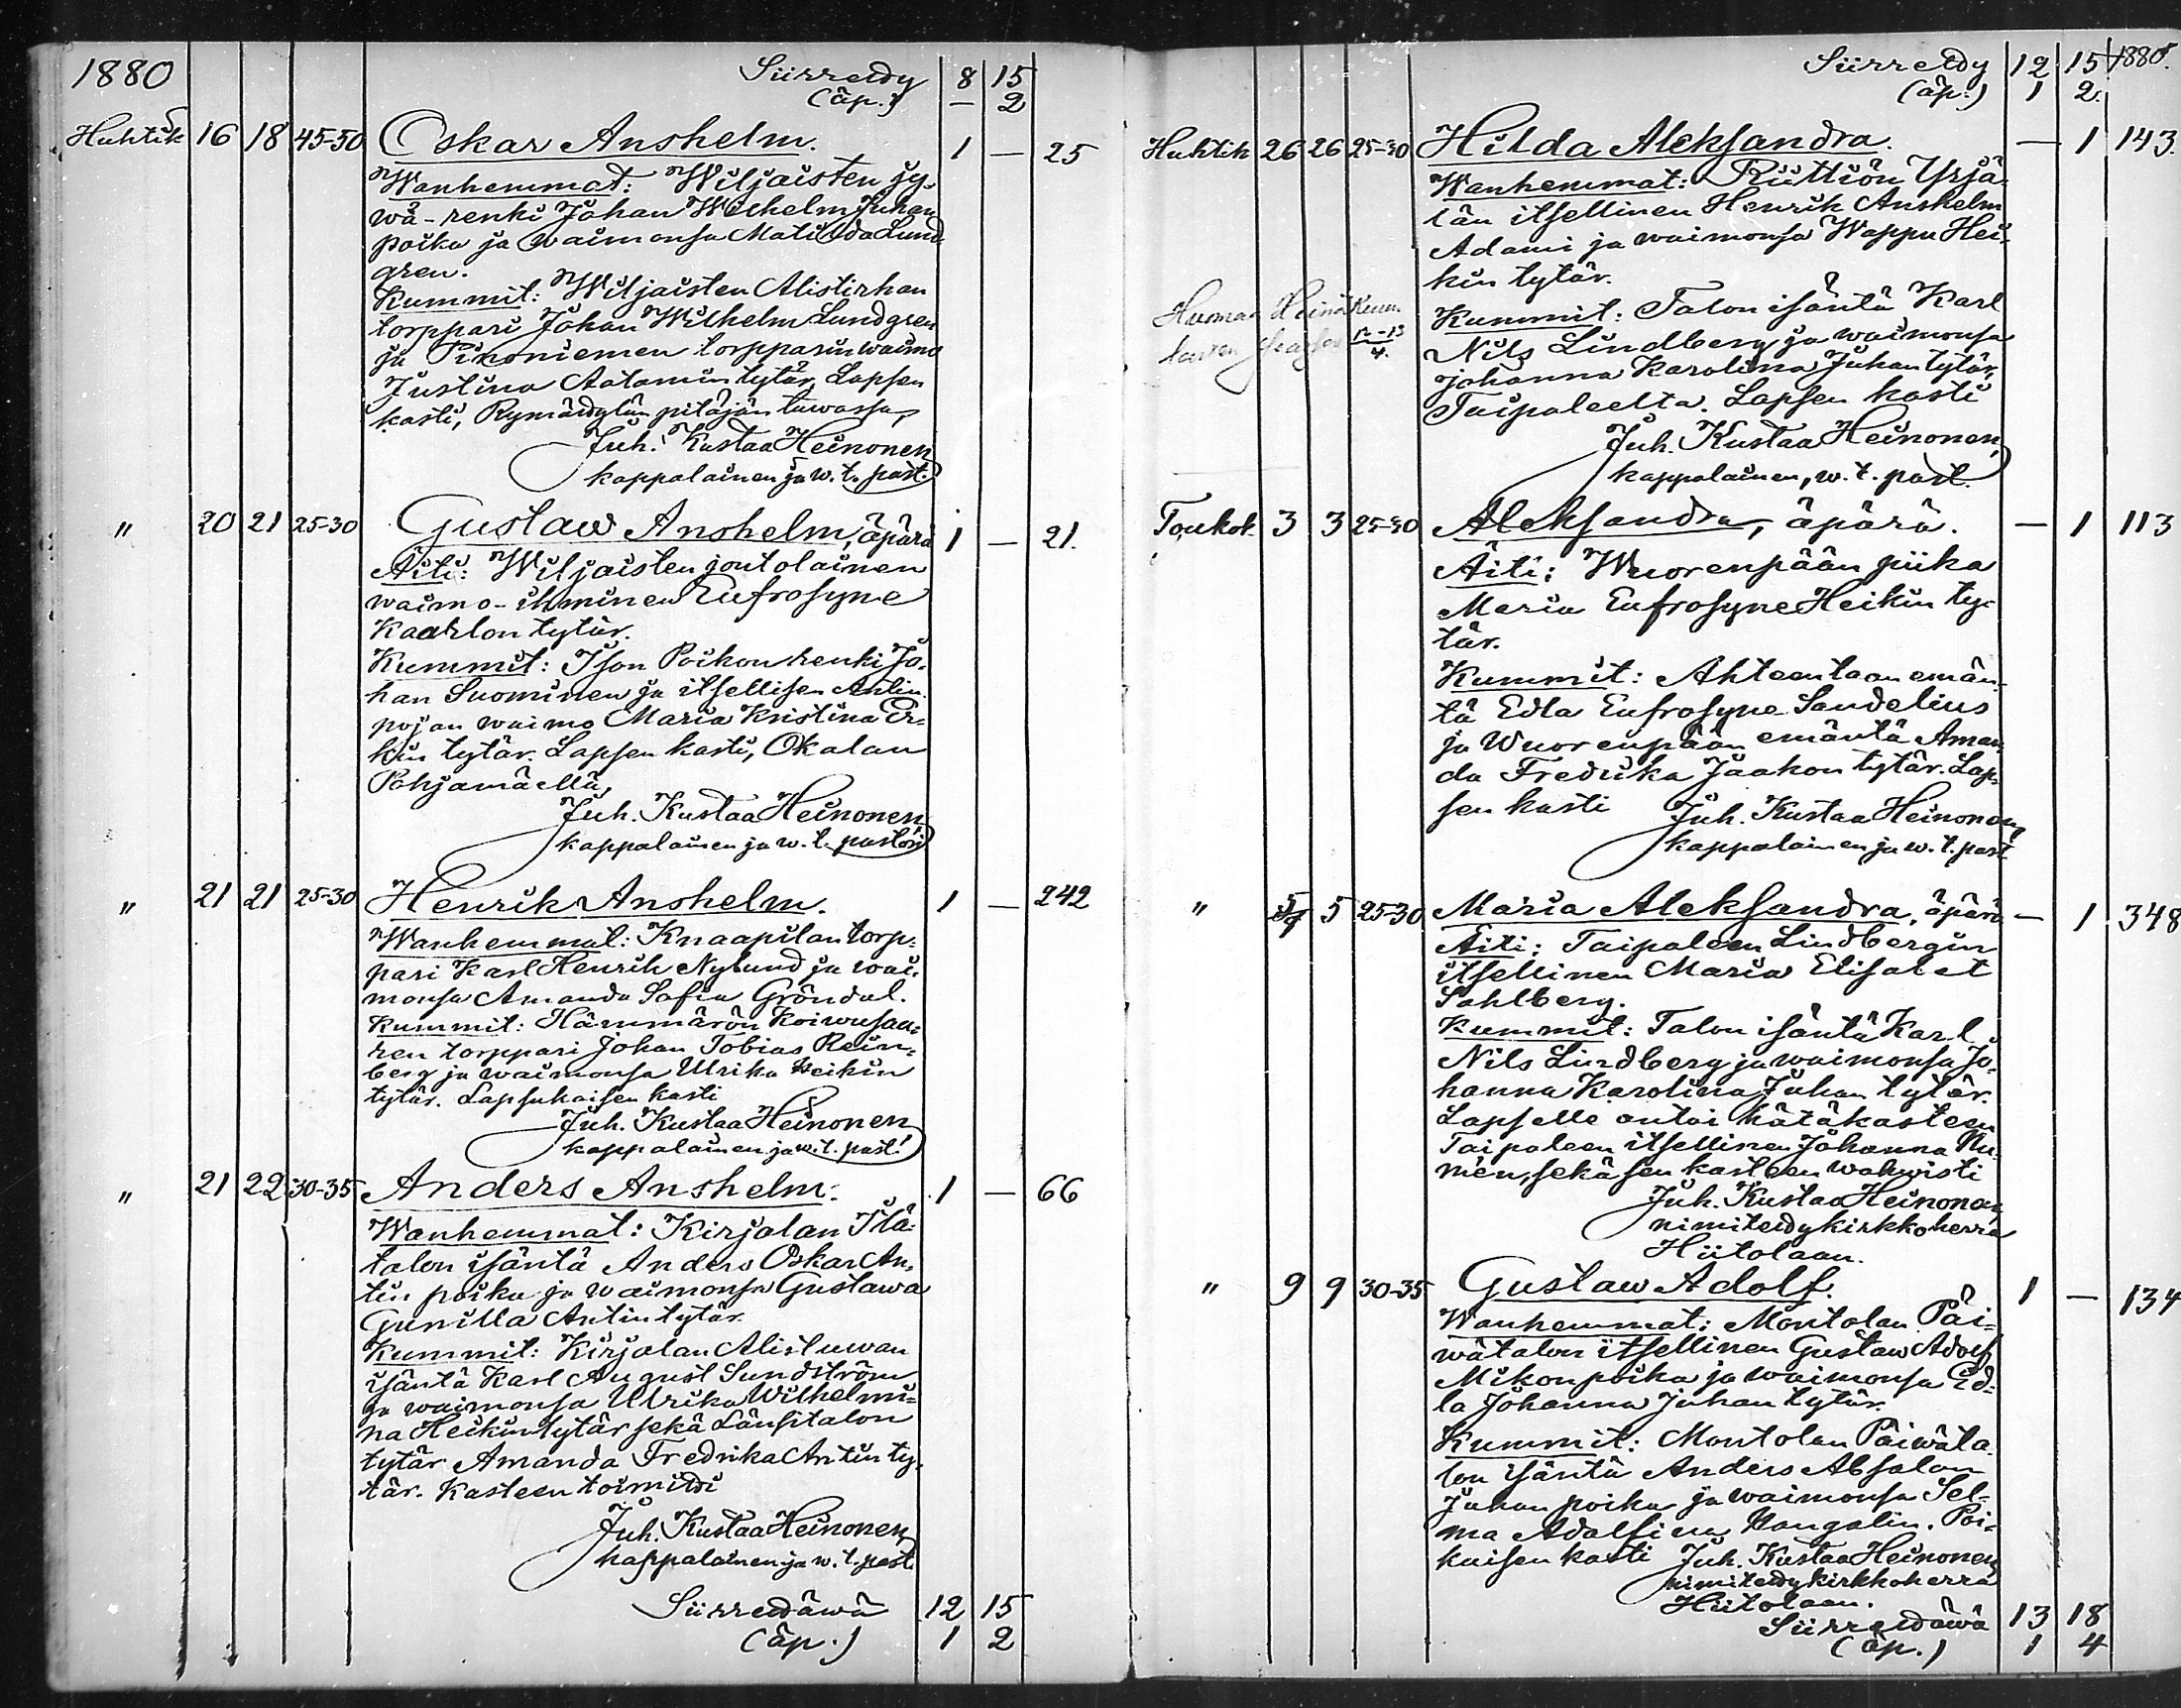 1880 Siirretty 8 15
(äp.) — 2
Huhtik 16 18 45-50 Oskar Anshelm. 1 — 25
Wanhemmat: Wiljaisten jy-
wä-renki Johan Wilhelm Juhan
poika ja waimonsa Matilda Lund-
gren.
Kummit: Wiljaisten Alistirhan
torppari Johan Wilhelm Lundgren
ja torpparin waimo
Justina Aatamin tytär. Lapsen
kasti, Rymättylän pitäjän tuwassa,
Juh. Kustaa Heinonen
kappalainen ja w. t. past.
" 20 21 25-30 Gustaw Anshelm, äpärä 1 — 21.
Äiti: Wiljaisten joutolainen
waimo-ihminen Eufrosyne
Kaarlon tytär.
Kummit: Ison Poikon renki Jo-
han Suominen ja itsellisen Antin
pojan waimo Maria Kristina Er-
kin tytär. Lapsen kasti, Okalan
Pohjamäellä,
Juh. Kustaa Heinonen,
kappalainen ja w. t. pastori
" 21 21 25-30 Henrik Anshelm. 1 — 242
Wanhemmat: Knaapilan torp-
pari Karl Henrik Nylund ja wai-
monsa Amanda Sofia Gröndal.
Kummit: Hämmärön Koiwusaa-
ren torppari Johan Tobias Rein-
berg ja waimonsa Ulrika Heikin
tytär. Lapsukaisen kasti
Juh. Kustaa Heinonen
kappalainen ja w. t. past.
" 21 22 30-35 Anders Anshelm. 1 — 66
Wanhemmat: Kirjalan Ylä-
talon isäntä Anders Oskar An-
tin poika ja waimonsa Gustawa
Gunilla Antin tytär.
Kummit: Kirjalan Alistuwan
isäntä Karl August Sundström
ja waimonsa Ulrika Wilhelmi-
na Heikin tytär sekä Länsitalon
tytär Amanda Fredrika Antin ty-
tär. Kasteen toimitti
Juh. Kustaa Heinonen,
kappalainen ja w. t. past.
Siirrettäwä 12 15
(äp.) 1 2
Siirretty 12 15 1880.
(äp.) 1 2.
Huhtik 26 26 25-30 Hilda Aleksandra. — 1 143.
Wanhemmat: Riittiön Yrjä-
län itsellinen Henrik Anshelm
Adami ja waimonsa Wappu Hei-
kin tytär.
Kummit: Talon isäntä Karl
Nils Lindberg ja waimonsa
Johanna Karolina Juhan tytär,
Taipaleelta. Lapsen kasti
Juh. Kustaa Heinonen,
kappalainen, w. t. past.
Toukok. 3 3 25-30 Aleksandra, äpärä. — 1 113
Äiti: Wuorenpään piika
Maria Eufrosyne Heikin ty-
tär.
Kummit: Ahteentaan emän-
tä Edla Eufrosyne Sandelius
ja Wuorenpään emäntä Aman
da Fredrika Jaakon tytär. Lap-
sen kasti Juh. Kustaa Heinonen,
kappalainen ja w. t. past
" 5 5 25-30 Maria Aleksandra, äpärä — 1 348
Äiti: Taipaleen Lindbergin
itsellinen Maria Elisabet
Sahlberg.
Kummit: Talon isäntä Karl
Nils Lindberg ja waimonsa Jo-
hanna Karolina Juhan tytär.
Lapselle antoi hätäkasteen
Taipaleen itsellinen Johanna Nu-
mén, sekä sen kasteen wahwisti
Juh. Kustaa Heinonen,
nimitetty kirkkoherra
Hiitolaan.
" 9 9 30-35 Gustaw Adolf. 1 — 134
Wanhemmat: Montolan Päi-
wätalon itsellinen Gustaw Adolf
Mikonpoika ja waimonsa Ed-
la Johanna Juhan tytär.
Kummit: Montolan Päiwäta-
lon isäntä Anders Absalon
Juhan poika ja waimonsa Sel-
ma Adolfina Hongelin. Poi-
kaisen kasti Juh. Kustaa Heinonen,
nimitetty kirkkoherra
Hiitolaan.
Siirrettäwä 13 18
(äp.) 1 4